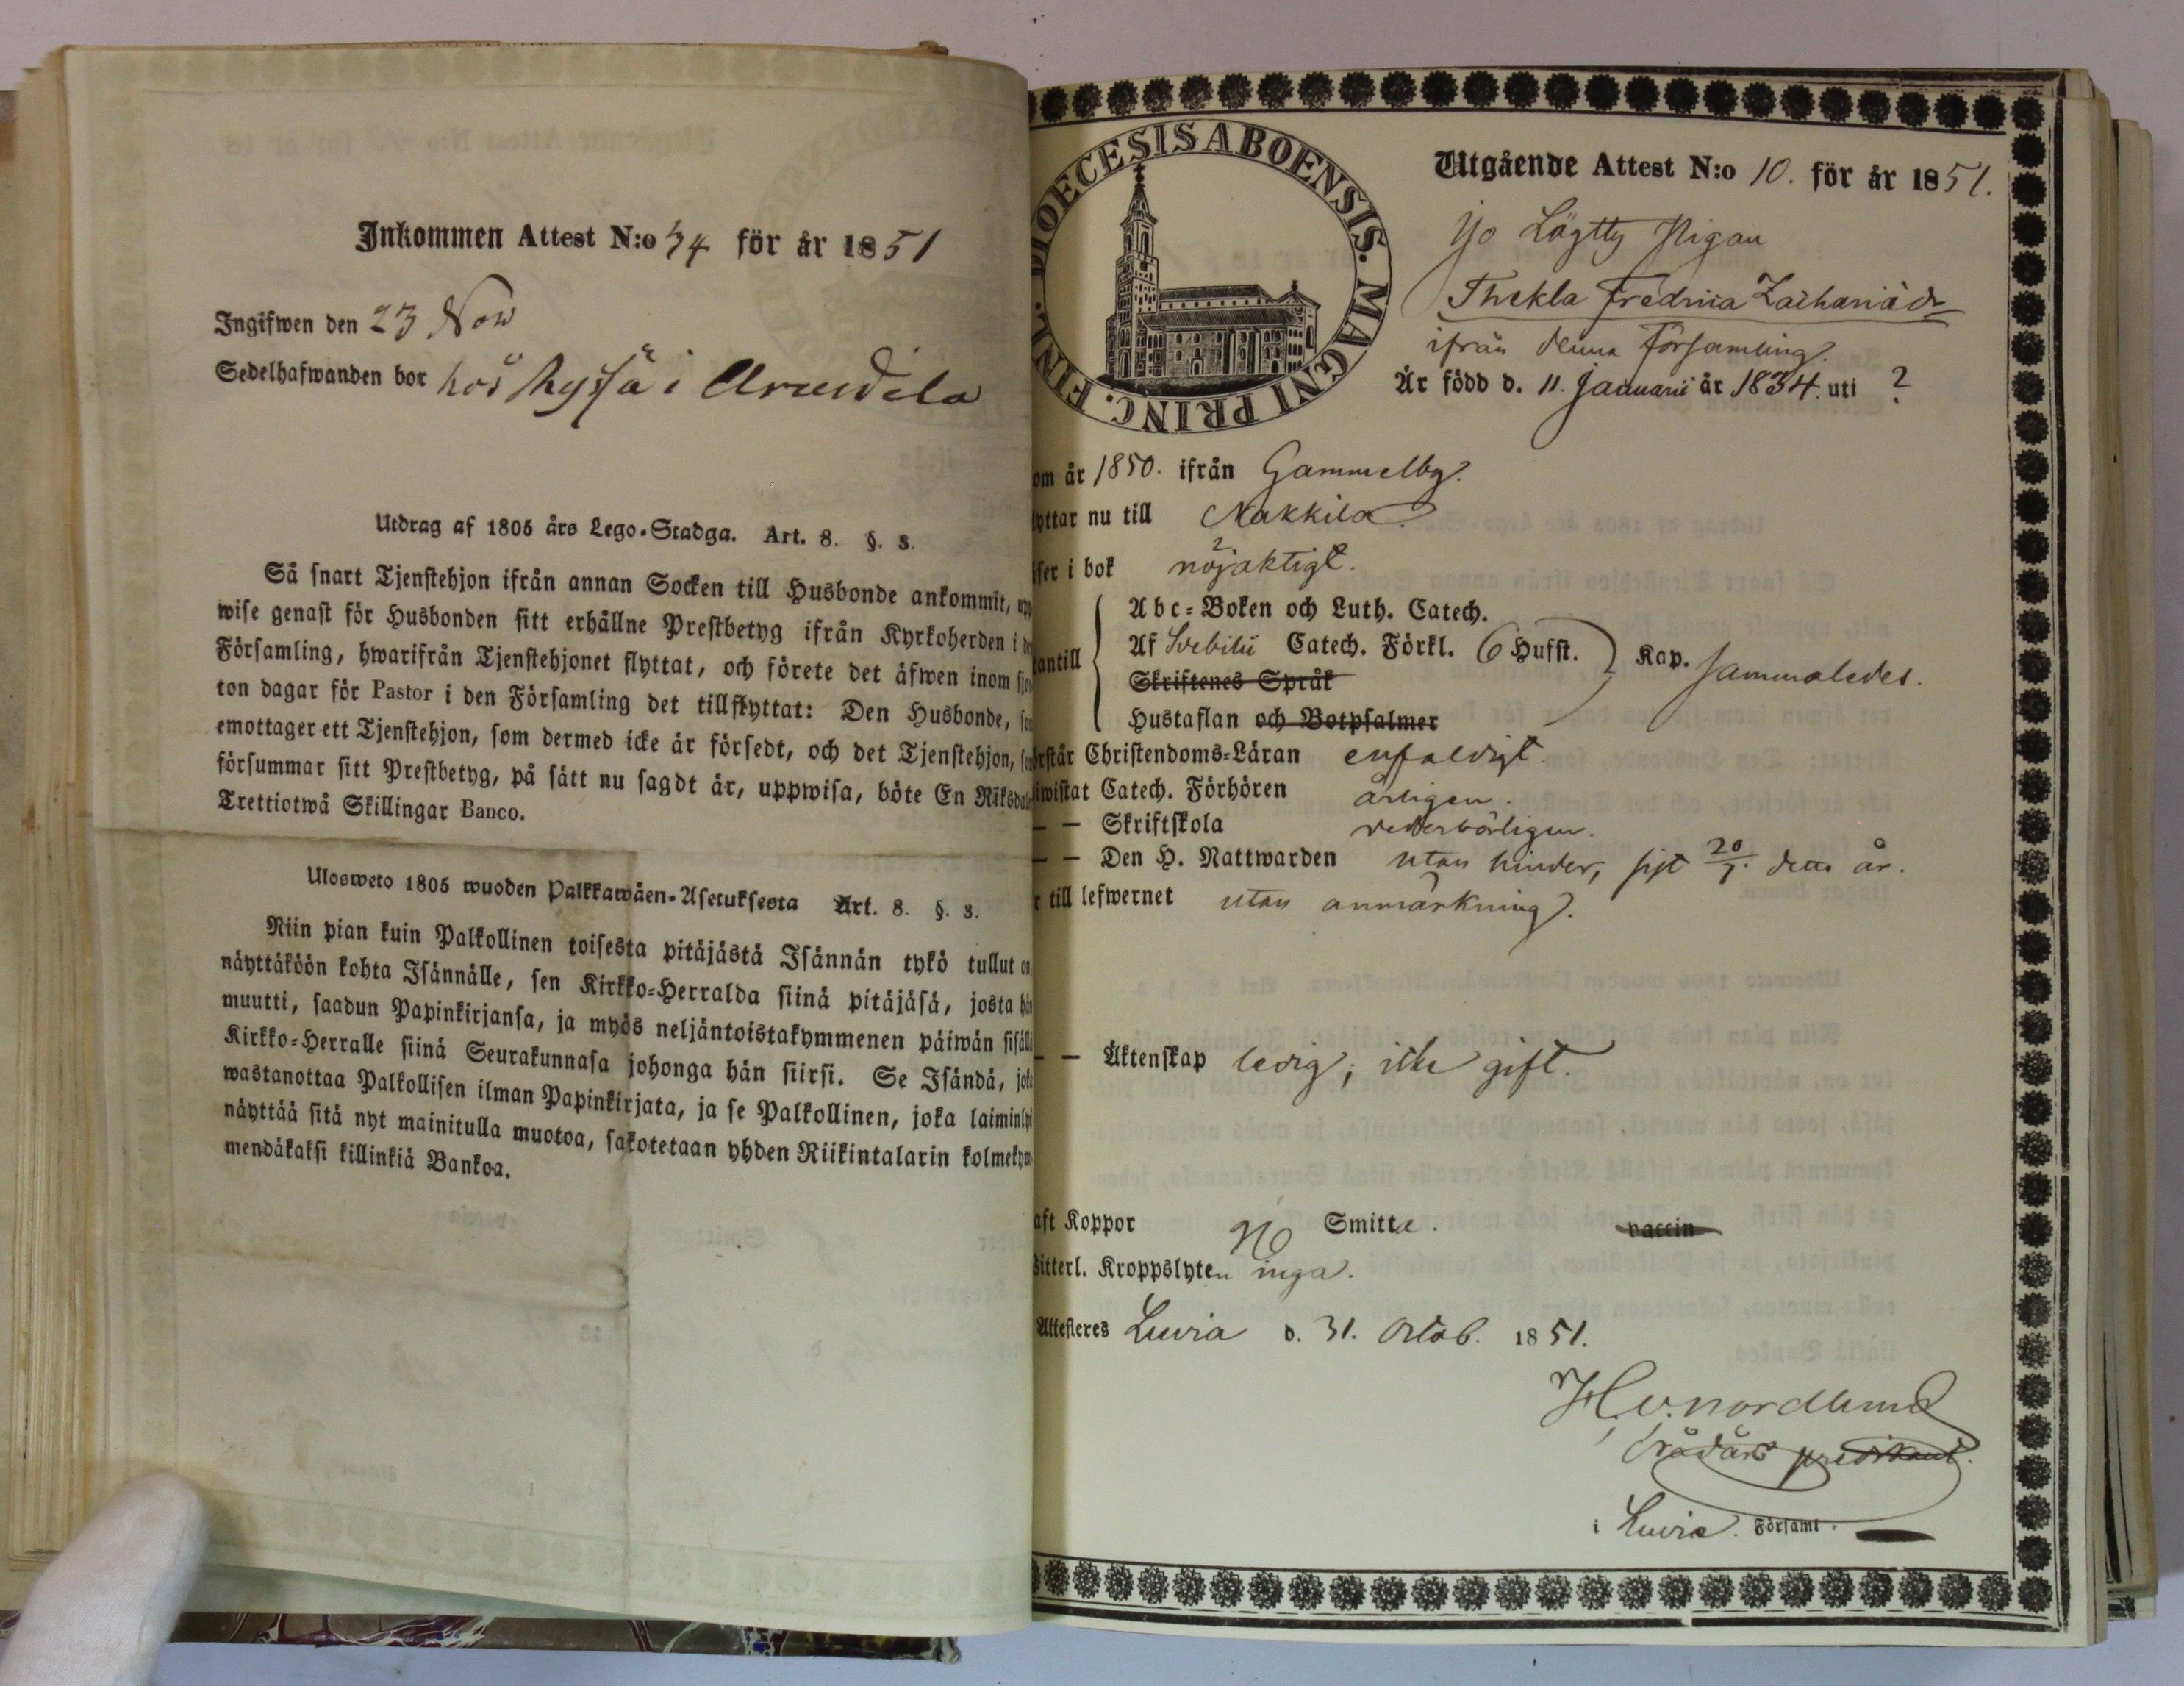 Inkommen Attest N:o 34 för år 1851
Ingifwen den 23 Nov
Sedelhafwanden bor hos i
Utdrag af 1805 års Lego-Stadga. Art. 8. §. 8.
Så snart Tjenstehjon ifrån annan Socken till Husbonde ankommit, upp
wise genast för Husbonden sitt erhållne Prestbetyg ifrån Kyrkoherden i
Församling, hwarifrån Tjenstehjonet flyttat, och förete det äfwen inom
ton dagar för Pastor i den Församling det tillflyttat: Den Husbonde,
emottager ett Tjenstehjon, som dermed icke är försedt, och det Tjenstehjon,
försummar sitt Prestbetyg, på sätt nu sagdt är, uppwisa, böte En Riksdal
Trettiotwå Skillingar Banco.
Ulosweto 1805 wuoden Palkkawäen-Asetuksesta Art. 8. §. 8.
Niin pian kuin Palkollinen toisesta pitäjästä Isännän tykö tullut on
näyttäköön kohta Isännälle, sen Kirkko-Herralda siinä pitäjäsä, josta hän
muutti, saadun Papinkirjansa, ja myös neljäntoistakymmenen päiwän sisäll
Kirkko-Herralle siinä Seurakunnasa johonga hän siirsi. Se Isändä, joka
wastanottaa Palkollisen ilman Papinkirjata, ja se Palkollinen, joka laiminly
näyttää sitä nyt mainitulla muotoa, sakotetaan yhden Riikintalarin kolmekym
mendäkaksi killinkiä Bankoa.
DIOECESIS ABOENSIS. MAGNI PRINC. FINL.
Utgående Attest N:o 10. för år 1851.
Pigan
Thekla Fredrica Zachariædr
ifrån denna församling.
Är född d. 11. Januarii år 1834. uti ?
om år 1850. ifrån Gammelby.
lyttar nu till Nakkila.
äser i bok nöjaktigt.
Abc-Boken och Luth. Catech.
Af Svebilii Catech. Förkl. 6 Hufst.
antill Kap. sammaledes.
Skriftenes Språk
Hustaflan och Botpsalmer
örstår Christendoms-Läran enfaldigt.
iwistat Catech. Förhören årligen.
— — Skriftskola vederbörligen.
— — Den H. Nattwarden utan hinder, sist 20/7. detta år.
r till lefwernet utan anmärkning.
— — Äktenskap ledig; icke gift.
aft Koppor Smitta.
vaccin
Witterl. Kroppslyten inga.
Attesteres Luvia d. 31. Octob. 1851.
H. v. nordlund
predikant.
i Luvia. Församl.